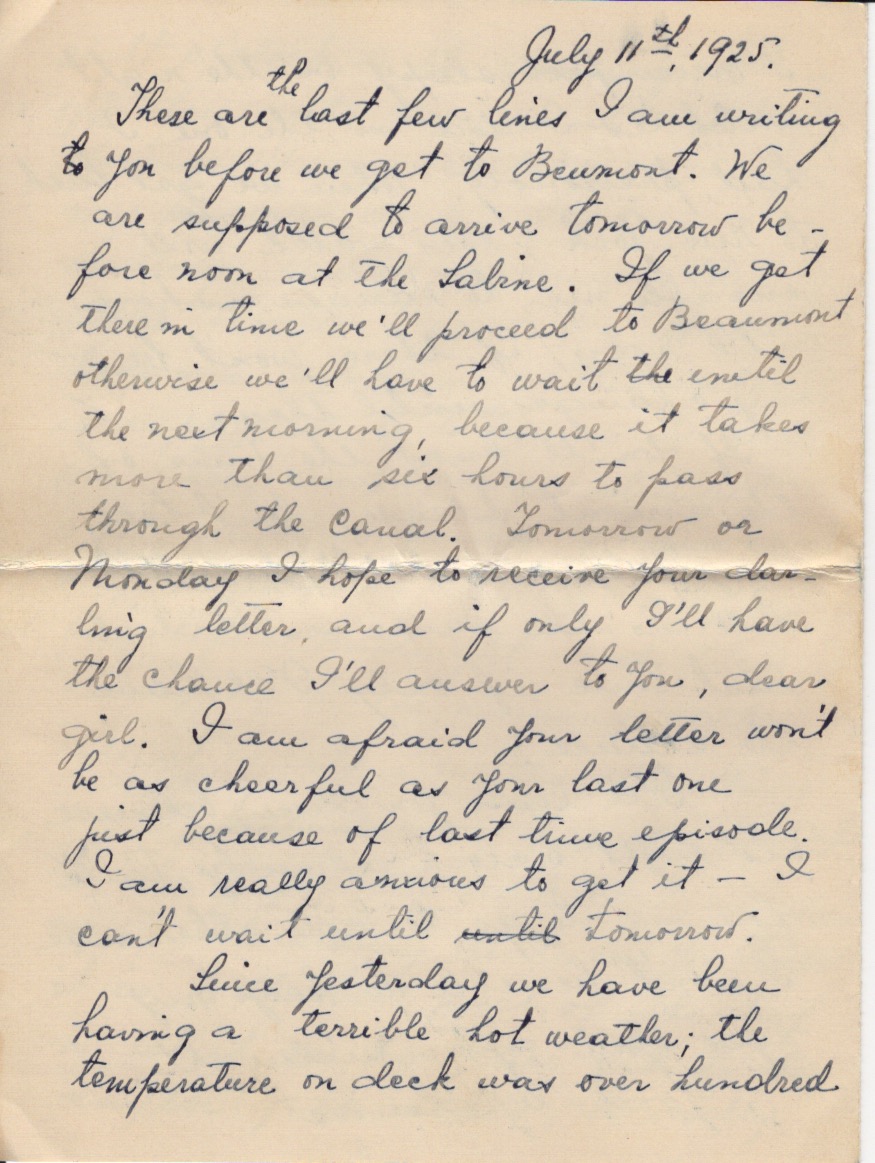 July 11th, 1925.
These are the last few lines I am writing
to You before we get to Beumont. We
are supposed to arrive tomorrow be-
fore noon at the Sabine. If we get
there in time we'll proceed to Beaumont
otherwise we'll have to wait the until
the next morning, because it takes
more than six hours to pass
through the Canal. Tomorrow or
Monday I hope to receive Your dar-
ling letter, and if only I'll have
the chance I'll answer to You, dear
girl. I am afraid Your letter won't
be as cheerful as Your last one
just because of last time episode.
I am really anxious to get it – I
can't wait until until tomorrow.
Since Yesterday we have been
having a terrible hot weather; the
temperature on deck was over hundred